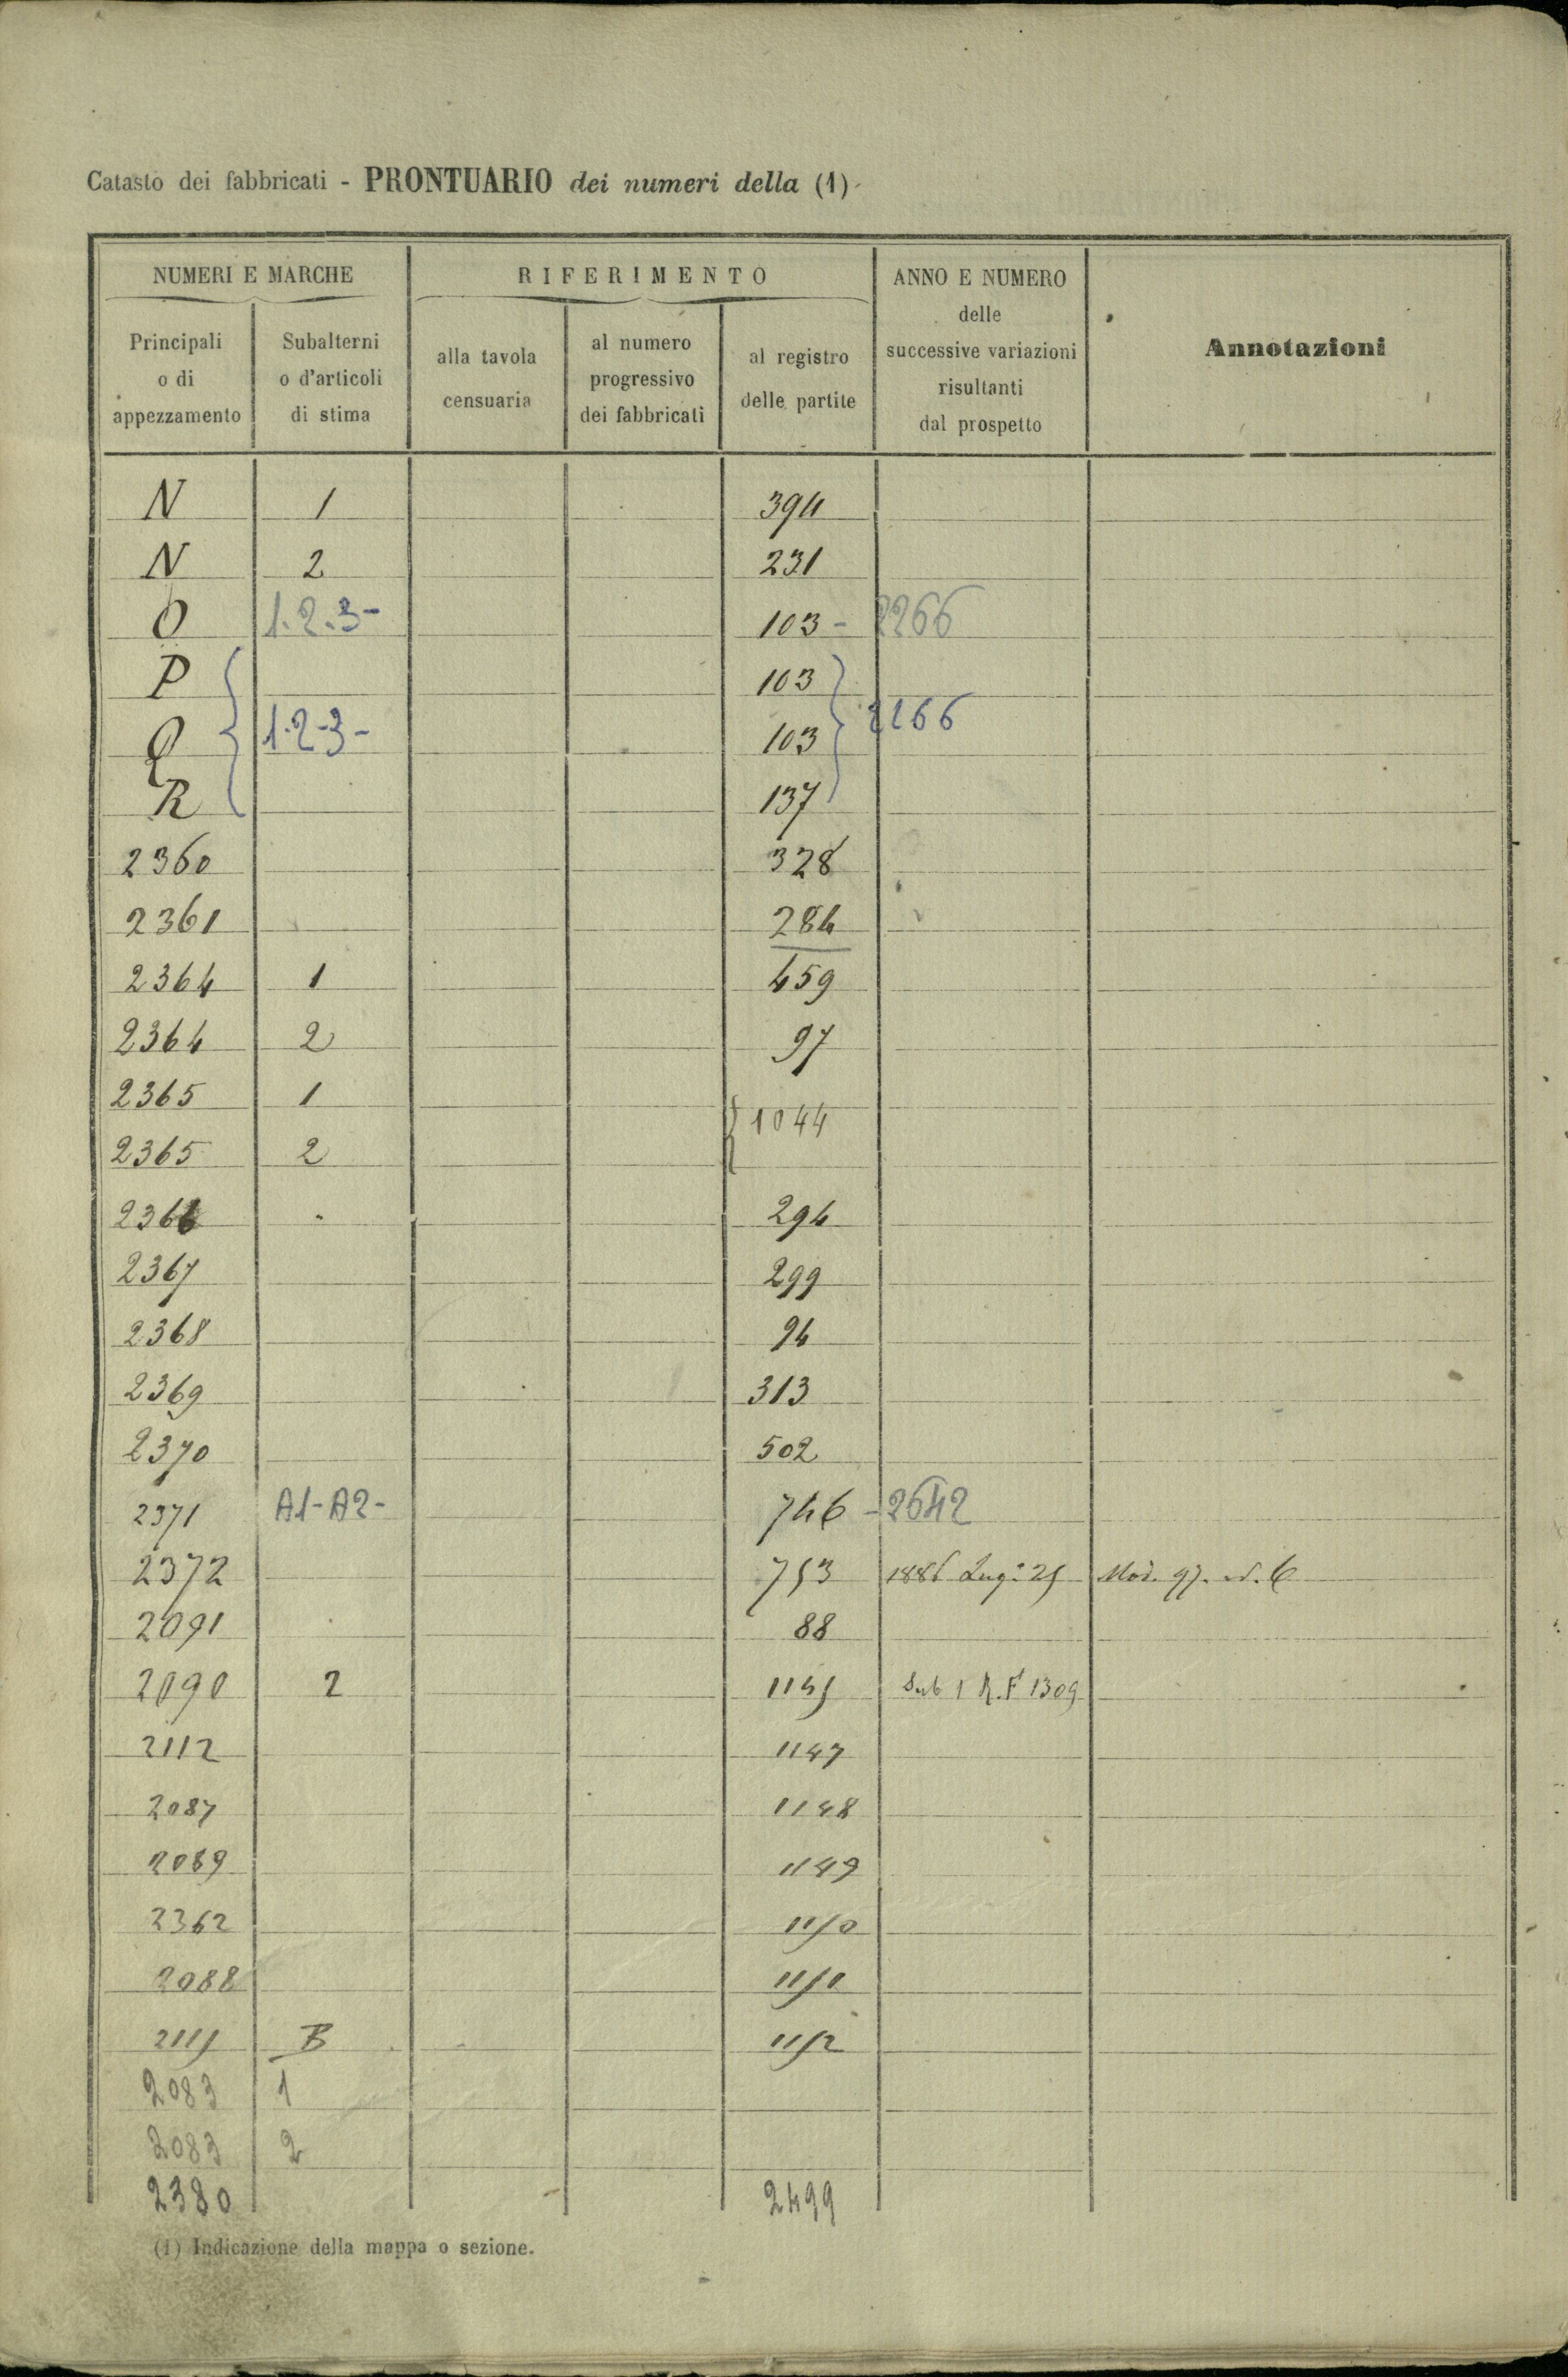 Catasto dei fabbricati - PRONTUARIO dei numeri della (1)
NUMERI E MARCHE
RIFERIMENTO
ANNO E NUMERO
delle
successive variazioni
risultanti
dal prospetto
Annotazioni
Principali
o di
appezzamento
Subalterni
o d'articoli
di stima
alla tavola
censuaria
al numero
progressivo
dei fabbricati
al registro
delle partite
N 1 394
N 2 231
O 1.2.3- 103 - 2266
P 103
Q 1-2-3- 103 2266
R 137
2360 328
2361 284
2364 1 459
2364 2 97
2365 1 1044
2365 2
2366 294
2367 299
2368 94
2369 313
2370 502
2371 A1-A2- 746 - 2642
2372 753 1886 Lug: 25 Mod. 97.
2091 88
2090 2 1145 Sub 1 R.F 1309
2112 1147
2087 1148
2089 1149
2362 1150
2088 1151
2115 B 1152
2083 1
2083 2
2380 2499
(1) Indicazione della mappa o sezione.